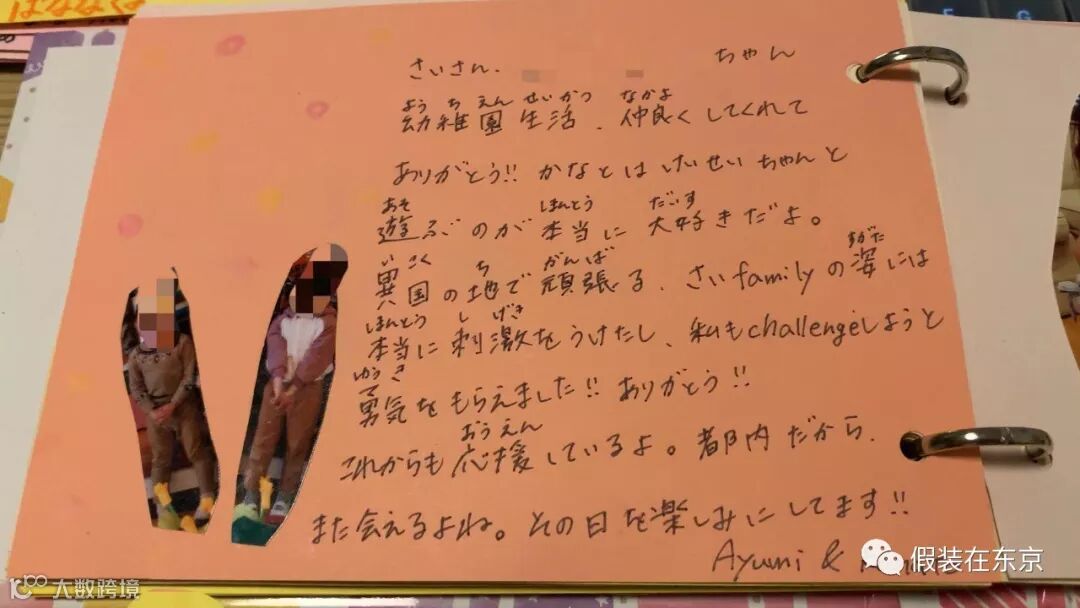 ばななく
さいさん、 ちゃん
よう ち えん せい かつ なかよ
幼稚園生活、仲良くしてくれて
ありがとう!! かなとは けいせい ちゃんと
あそ ほんとう だいす
遊ぶのが 本当に 大好きだよ。
い こく ち がんば すがた
異国の地で 頑張る、さいfamilyの姿には
ほんとう し げき
本当に 刺激をうけたし、私もchallengeしようと
ゆう き
勇気をもらえました!! ありがとう!!
おうえん
これからも 応援しているよ。都内だから、
また会えるよね。その日を楽しみにしてます!!
Ayumi &
假装在东京
大数跨境